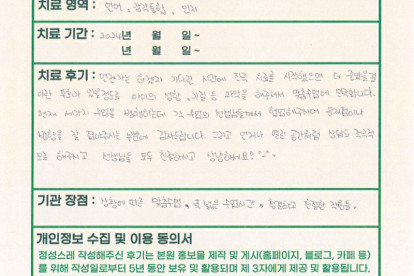 치료 영역 : 언어, 감각통합, 인지
치료 기간 : 2024년 월 일 ~
년 월 일 ~
치료 후기 : 언젠가는 하겠지 기다린 시간에 진작 치료를 시작했으면 더 좋았을걸
이란 후회가 있을정도로 아이의 성향, 기질 등 파악을 해주셔서 맞춤수업에 만족합니다.
현재 세가지 수업을 병행하는데 각 수업의 선생님들께서 협업해주시며 문제점이나
방향을 잘 잡아주시는 부분에 감사드립니다. 그리고 언제나 열린 공간처럼 상담도 조직적
으로 해주시고 선생님들 모두 친절하시고 상냥하세요! ^-^
기관 장점 : 상황에 따른 맞춤수업, 폭 넓은 수업시간, 청결하고 친절한 직원들.
개인정보 수집 및 이용 동의서
정성스레 작성해주신 후기는 본원 홍보물 제작 및 게시(홈페이지, 블로그, 카페 등)
를 위해 작성일로부터 5년 동안 보유 및 활용되며 제 3자에게 제공 및 활용됩니다.